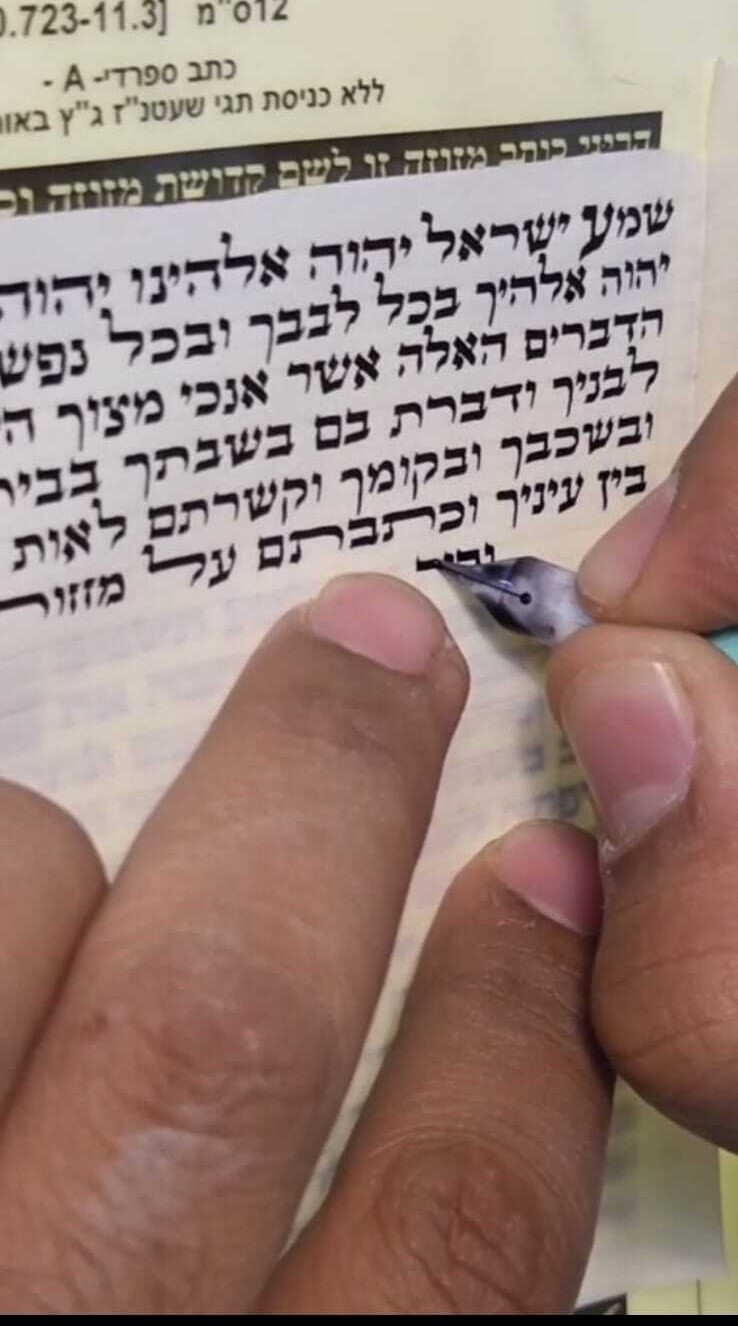 0.723-11.3] 12ס"מ
כתב ספרדי- A -
ללא כניסת תגי שעטנ"ז ג"ץ באו
הריני כותב מזוזה זו לשם קדושת מזוזה
שמע ישראל יהוה אלהינו יהוה
יהוה אלהיך בכל לבבך ובכל נפש
הדברים האלה אשר אנכי מצוך ה
לבניך ודברת בם בשבתך בבי
ובשכבך ובקומך וקשרתם לאות
בין עיניך וכתבתם על מזוו